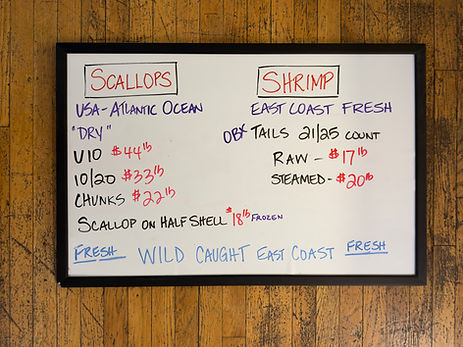 SCALLOPS
USA-ATLANTIC OCEAN
"DRY"
U10 $44 lb
10/20 $33 lb
CHUNKS $22 lb
SCALLOP ON HALF SHELL $18 lb FROZEN
SHRIMP
EAST COAST FRESH
OBX TAILS 21/25 COUNT
RAW - $17 lb
STEAMED - $20 lb
FRESH WILD CAUGHT EAST COAST FRESH